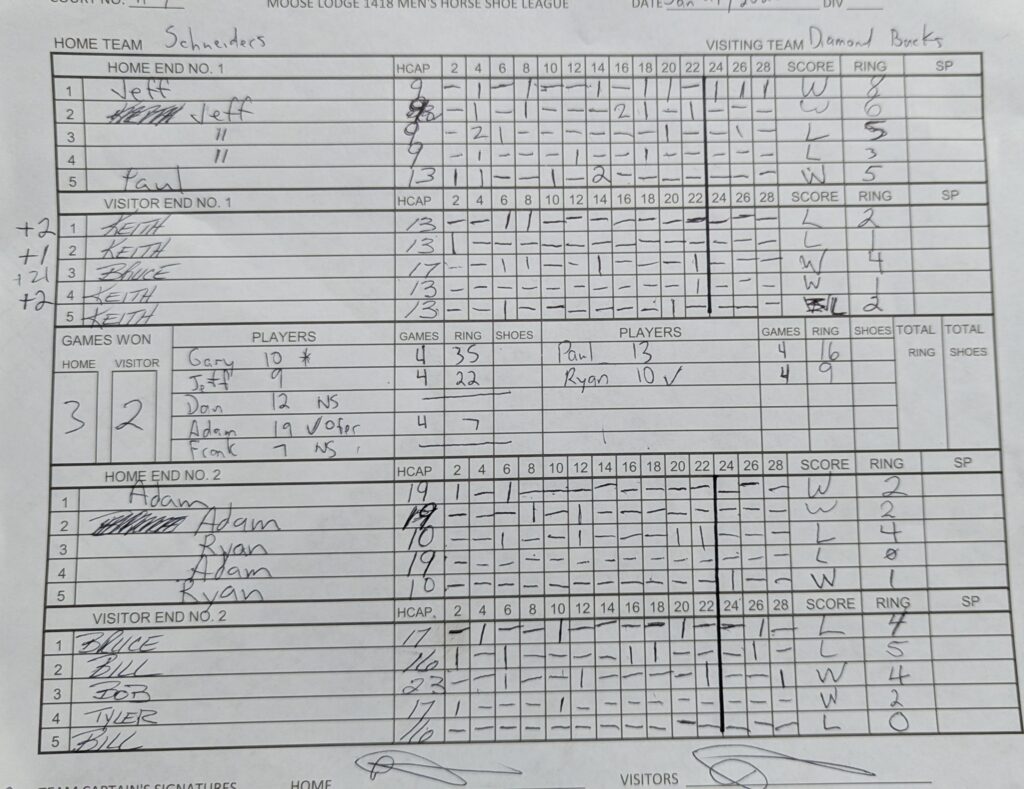 COURT NO.
MOOSE LODGE 1418 MEN'S HORSE SHOE LEAGUE
DATE Jan
DIV
HOME TEAM Schneiders
VISITING TEAM Diamond Bucks
HOME END NO. 1 HCAP 2 4 6 8 10 12 14 16 18 20 22 24 26 28 SCORE RING SP
1 Jeff 9 - 1 - 1 - - 1 - 1 1 - 1 1 1 W 8
2 Jeff - 1 - 1 - - - 2 1 - 1 - - - W 6
3 " 9 - 2 1 - - - - - - 1 - - 1 - L 5
4 " 9 - 1 - - - 1 - - 1 - - - - - L 3
5 Paul 13 1 1 - - 1 - 2 - - - - - - - W 5
VISITOR END NO. 1 HCAP 2 4 6 8 10 12 14 16 18 20 22 24 26 28 SCORE RING SP
+2 1 KEITH 13 - - 1 1 - - - - - - - - - - L 2
+1 2 KEITH 13 1 - - - - - - - - - - - - - L 1
+21 3 BRUCE 17 - - 1 1 - - 1 - - - 1 - - - W 4
+2 4 KEITH 13 - - - - - - - - - - - - - W 1
5 KEITH 13 - - 1 - - - - - - 1 - - - - L 2
GAMES WON PLAYERS GAMES RING SHOES PLAYERS GAMES RING SHOES TOTAL RING TOTAL SHOES
HOME VISITOR
3 2
Gary 10 * 4 35 Paul 13 4 16
Jeff 9 4 22 Ryan 10 ✓ 4 9
Don 12 NS
Adam 19 ✓ 4 7
Frank 7 NS
HOME END NO. 2 HCAP 2 4 6 8 10 12 14 16 18 20 22 24 26 28 SCORE RING SP
1 Adam 19 1 - 1 - - - - - - - - - - - W 2
2 Adam 19 - - - 1 - 1 - - - - - - - - W 2
3 Ryan 10 - - 1 - - 1 - - - 1 1 - - - L 4
4 Adam 19 - - - - - - - - - - - - - - L 0
5 Ryan 10 - - - - - - - - - - - 1 - - W 1
VISITOR END NO. 2 HCAP. 2 4 6 8 10 12 14 16 18 20 22 24 26 28 SCORE RING SP
1 BRUCE 17 - 1 - - 1 - - - - 1 - - 1 - L 4
2 BILL 16 1 - 1 - - - - 1 1 - - - 1 - L 5
3 BOB 23 - - 1 - - 1 - - - - 1 - - 1 W 4
4 TYLER 17 1 - - - 1 - - - - - - - - - W 2
5 BILL 16 - - - - - - - - - - - - - - L 0
TEAM CAPTAIN'S SIGNATURES HOME VISITORS